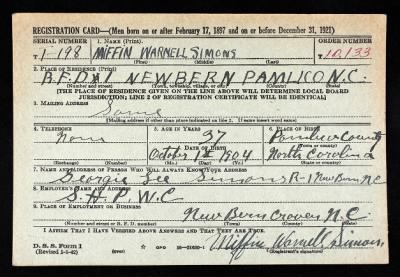 REGISTRATION CARD—(Men born on or after February 17, 1897 and on or before December 31, 1921)
SERIAL NUMBER 1. NAME (Print) ORDER NUMBER
T 1-198 MIFFIN WARNELL SIMONS T 10,133
(First) (Middle) (Last)
2. PLACE OF RESIDENCE (Print)
R.F.D. NEW BERN PAMLICO N.C.
(Number and street) (Town, township, village, or city) (County) (State)
[THE PLACE OF RESIDENCE GIVEN ON THE LINE ABOVE WILL DETERMINE LOCAL BOARD
JURISDICTION; LINE 2 OF REGISTRATION CERTIFICATE WILL BE IDENTICAL]
3. MAILING ADDRESS
Same
[Mailing address if other than place indicated on line 2. If same insert word same]
4. TELEPHONE 5. AGE IN YEARS 6. PLACE OF BIRTH
None 37 County
DATE OF BIRTH (Town or county)
October 1st 1904 North Carolina
(Exchange) (Number) (Mo.) (Day) (Yr.) (State or country)
7. NAME AND ADDRESS OF PERSON WHO WILL ALWAYS KNOW YOUR ADDRESS
Georgia Lee Simons R-1 New Bern N.C.
8. EMPLOYER'S NAME AND ADDRESS
S.H.P.W.C
9. PLACE OF EMPLOYMENT OR BUSINESS
New Bern Craven N.C.
(Number and street or R. F. D. number) (Town) (County) (State)
I AFFIRM THAT I HAVE VERIFIED ABOVE ANSWERS AND THAT THEY ARE TRUE.
D. S. S. FORM 1
(Revised 1-1-42) Miffin Warnell Simons